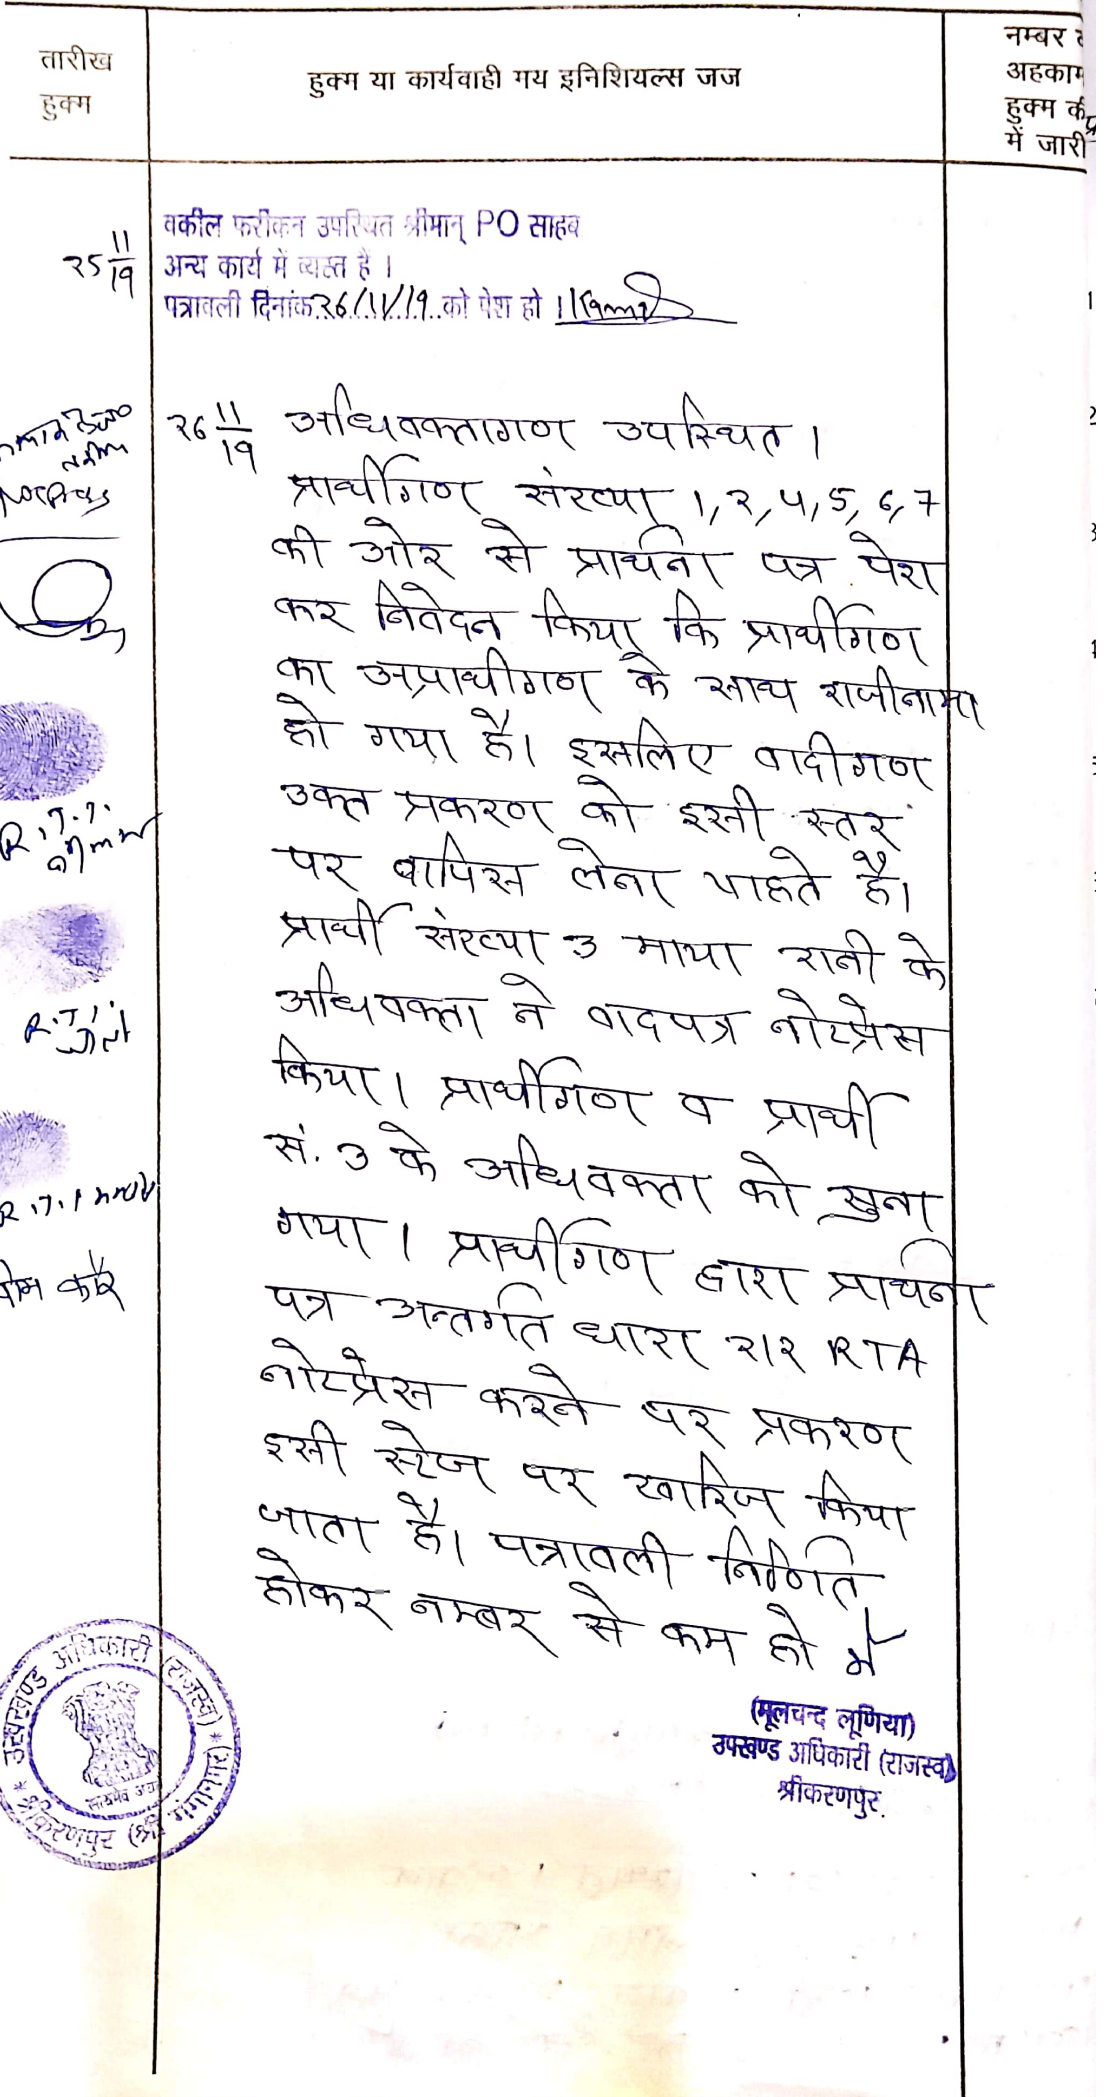 तारीख
हुक्म
हुक्म या कार्यवाही मय इनिशियल्स जज
नम्बर
अहकाम
हुक्म की
में जारी
25 11/19
वकील फरीकन उपस्थित श्रीमान् PO साहब
अन्य कार्य में व्यस्त है ।
पत्रावली दिनांक 26/11/19 को पेश हो ।
26 11/19 अधिवक्तागण उपस्थित ।
प्रार्थीगण संख्या 1, 2, 4, 5, 6, 7
की ओर से प्रार्थना पत्र पेश
कर निवेदन किया कि प्रार्थीगण
का अप्रार्थीगण के साथ राजीनामा
हो गया है। इसलिए वादीगण
उक्त प्रकरण को इसी स्तर
पर वापिस लेना चाहते है।
प्रार्थी संख्या 3 माया रानी के
अधिवक्ता ने वादपत्र नोटप्रेस
किया। प्रार्थीगण व प्रार्थी
सं. 3 के अधिवक्ता को सुना
गया । प्रार्थीगण द्वारा प्रार्थना
पत्र अन्तर्गत धारा 212 RTA
नोटप्रेस करने पर प्रकरण
इसी स्टेज पर खारिज किया
जाता है। पत्रावली निर्णित
होकर नम्बर से कम हो
(मूलचन्द लूणिया)
उपखण्ड अधिकारी (राजस्व)
श्रीकरणपुर
R.T.I.
R.T.I.
R.T.I
कौर
उपखण्ड अधिकारी (राजस्व)
श्रीकरणपुर (श्री गंगानगर)
सत्यमेव जयते